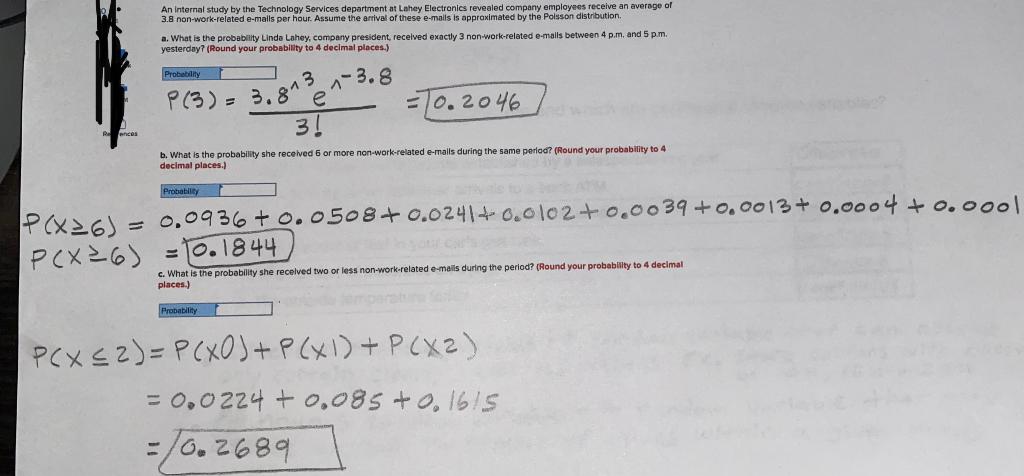 An internal study by the Technology Services department at Lahey Electronics revealed company employees receive an average of
3.8 non-work-related e-mails per hour. Assume the arrival of these e-mails is approximated by the Poisson distribution.
a. What is the probability Linda Lahey, company president, received exactly 3 non-work-related e-mails between 4 p.m. and 5 p.m.
yesterday? (Round your probability to 4 decimal places.)
Probability
P(3) = 3.8^3 e^-3.8 / 3! = 0.2046
b. What is the probability she received 6 or more non-work-related e-mails during the same period? (Round your probability to 4
decimal places.)
Probability
P(X≥6) = 0.0936 + 0.0508 + 0.0241 + 0.0102 + 0.0039 + 0.0013 + 0.0004 + 0.0001
P(X≥6) = 0.1844
c. What is the probability she received two or less non-work-related e-mails during the period? (Round your probability to 4 decimal
places.)
Probability
P(X≤2) = P(X0) + P(X1) + P(X2)
= 0.0224 + 0.085 + 0.1615
= 0.2689